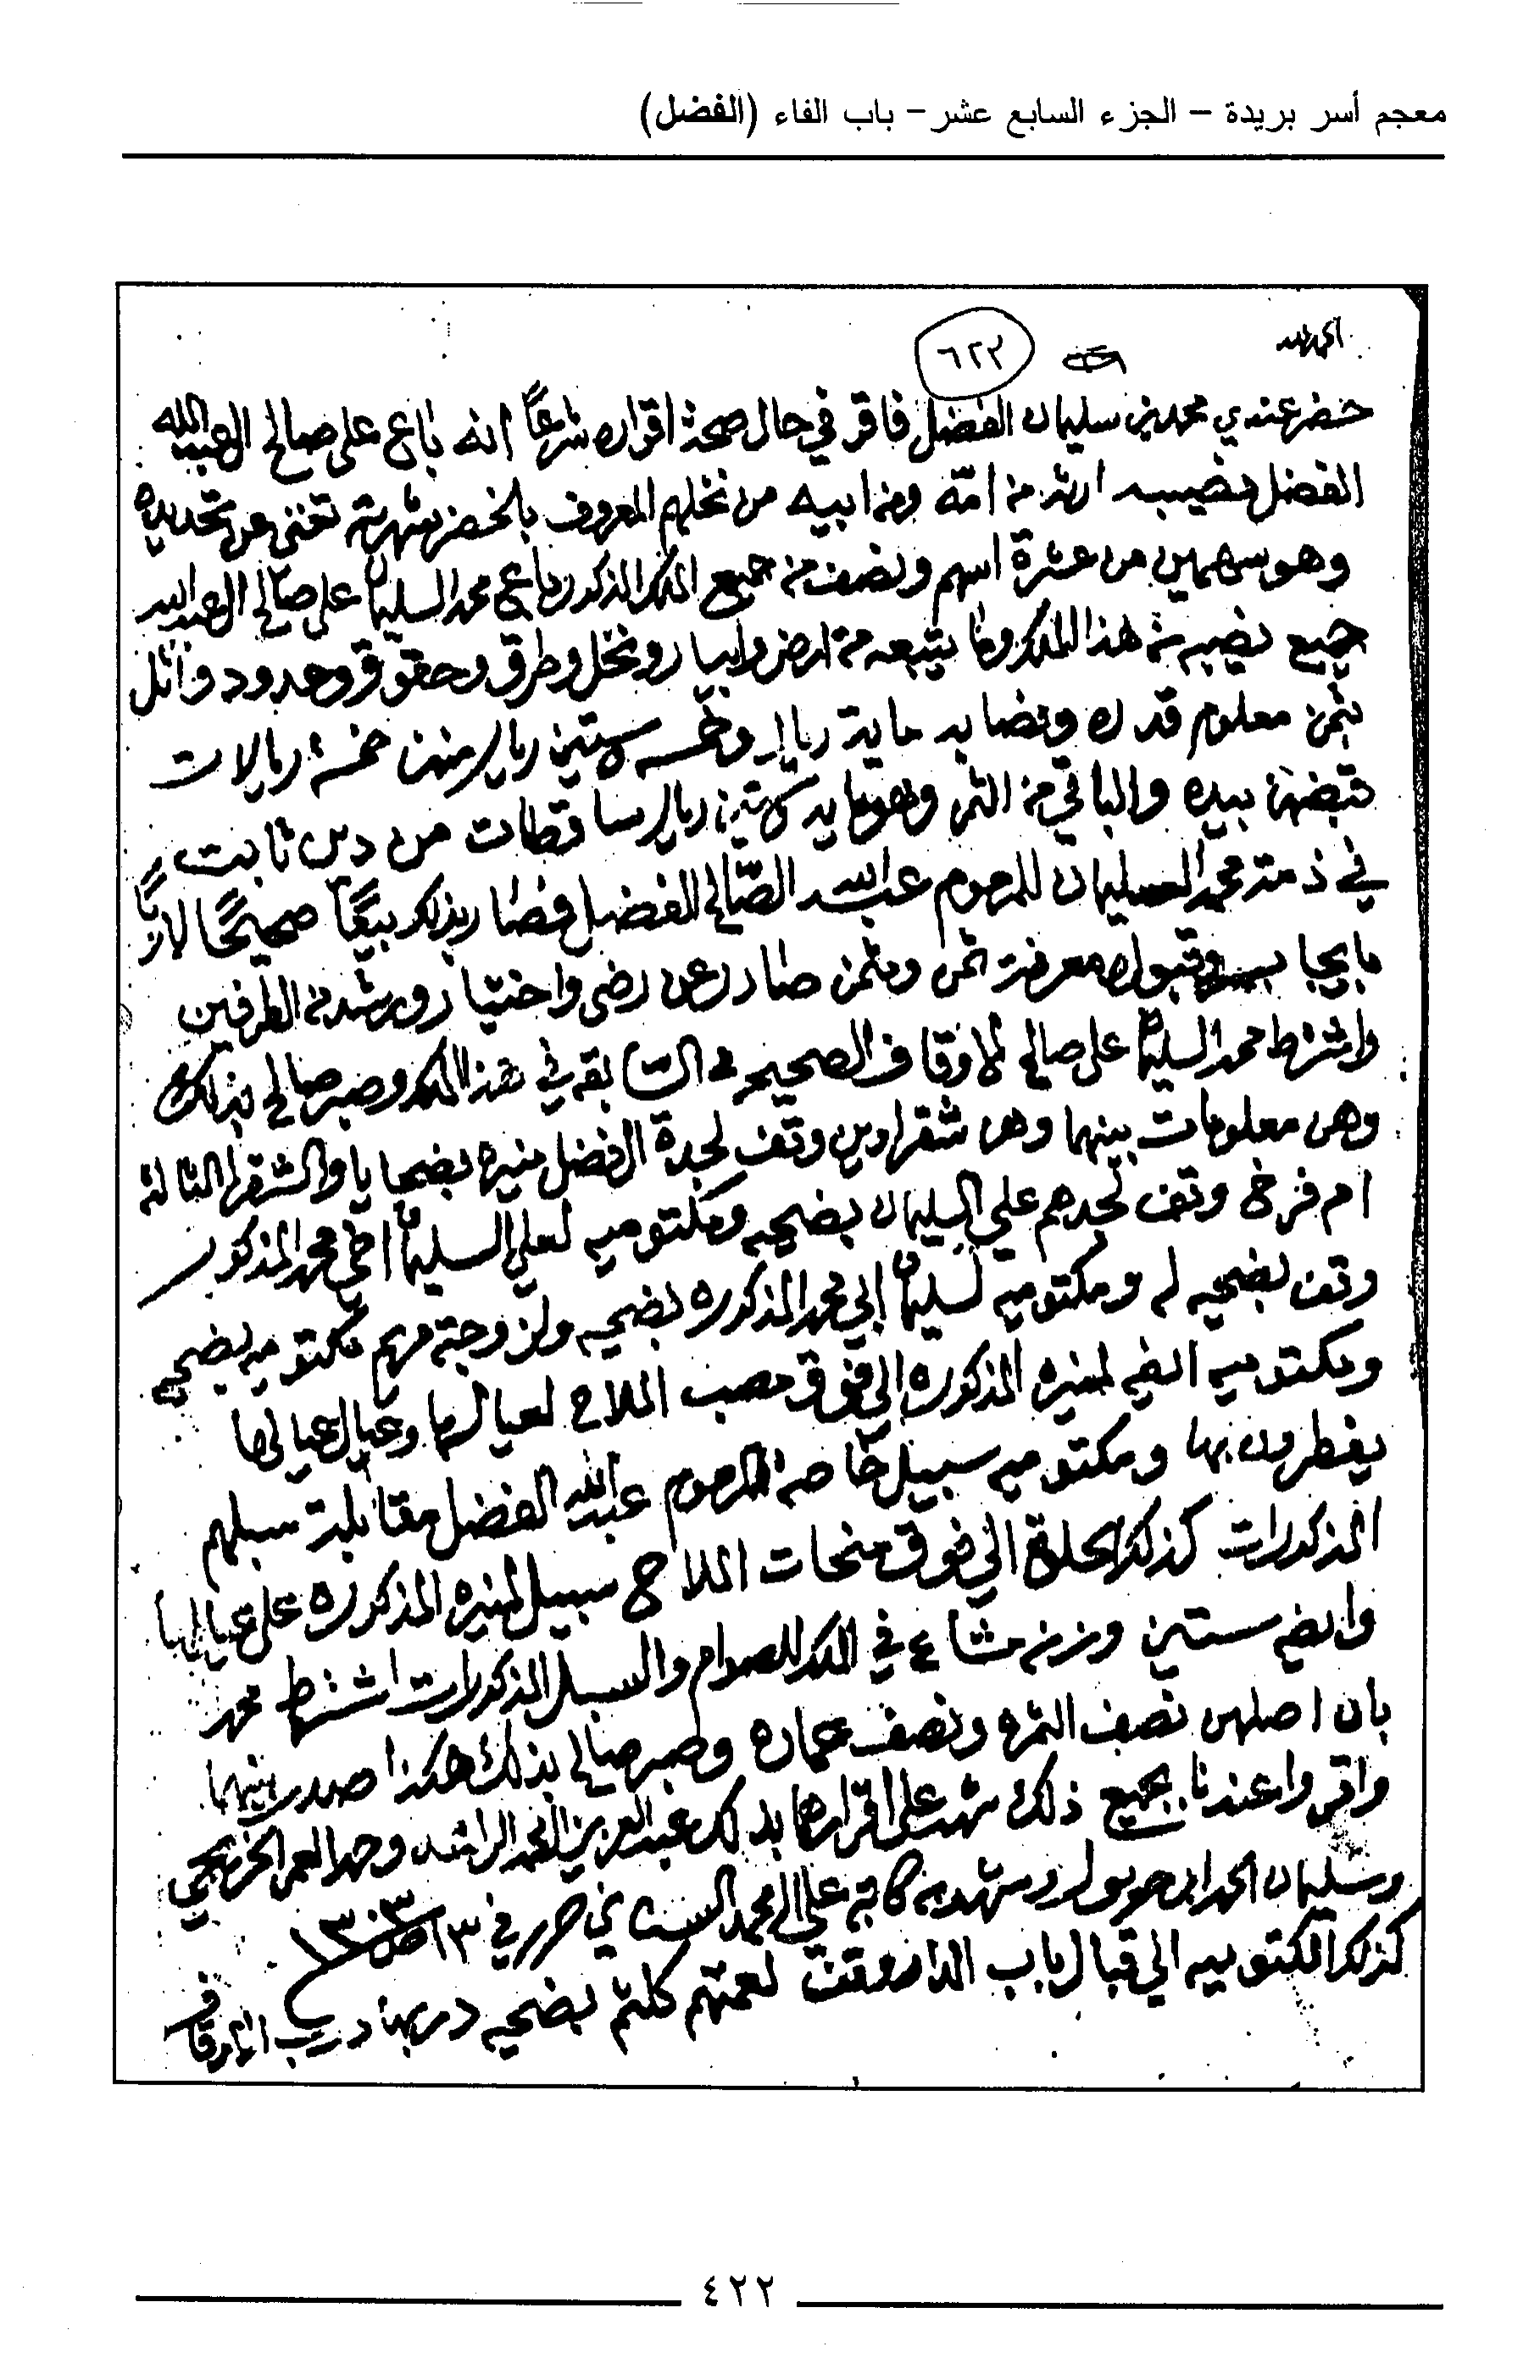 معجم أسر بريدة – الجزء السابع عشر – باب الفاء (الفضل)
الحمد لله
٦٢٣
حضر عندي محمد بن سليمان الفضل فاقر في حال صحة اقراره شرعاً انه باع على صالح العبدالله
الفضل نصيبه ارثه من امه ومن ابيه من نخلهم المعروف بالخضر شهرته تغني عن تحديده
وهو سهمين من عشرة اسهم ونصف من جميع الملك المذكور باع محمد السليمان على صالح العبدالله
جميع نصيبه من هذا الملك وما يتبعه من ارض وابيار ونخل وطرق وحقوق وحدود واثل
بثمن معلوم قدره ونصابه ماية ريال وخمسه وستين ريال منهن خمسة ريالات
قبضهن بيده والباقي من الثمن وهو مايه وستين ريال ساقطات من دين ثابت
في ذمة محمد السليمان للمرحوم عبدالله الصالح الفضل فصار بذلك بيعاً صحيحًا لازمًا
بايجاب وقبول ومعرفة ثمن ومثمن صادر عن رضى واختيار ورشد من الطرفين
واشترط محمد السليمان على صالح الاوقاف الصحيحه السابقه في هذا الملك وصبر صالح بذلك
وهن معلومات بينهما وهن شقراوين وقف لجدة الفضل منيره بضحايا والشقراء الثالثة
ام فرخ وقف لجدهم علي السليمان بضحيه ومكتوميه لعلي السليمان اخي محمد المذكور
وقف بضحيه له ومكتوميه لسليمان ابي محمد المذكوره بضحيه ولزوجته مكتوميه بضحيه
ومكتوميه ايضٍ لمنيره المذكوره الي فوق مصب الملاح لعيالها وعيال عيالها
يفطرون بها ومكتوميه سبيل خاصه المرحوم عبدالله الفضل مقابلة سبلهم
المذكورات كذلك الحلوة الي فوق منحات الملاح سبيل لمنيره المذكوره على عيالها
وايضٍ ستين وزنه مشاع في الملك للصوام والسبل المذكورات اشترط محمد
بان اصلهن نصف الثمره ونصف عماره وصبر صالح بذلك هكذا صدر بينهما
واقروا عندنا بجميع ذلك شهد على اقرارهما بذلك عبدالعزيز الحمد الراشد وحمد العمر الخريجي
وسليمان الحمد ابن حويول وشهد به كاتبه علي المحمد السناني حرر في ١٣ ص ١٣٠٣
كذلك المكتوميه الي قبال باب الدار وقف لعمتهم كلثم بضحيه دربها درب الاوقاف
٤٢٢